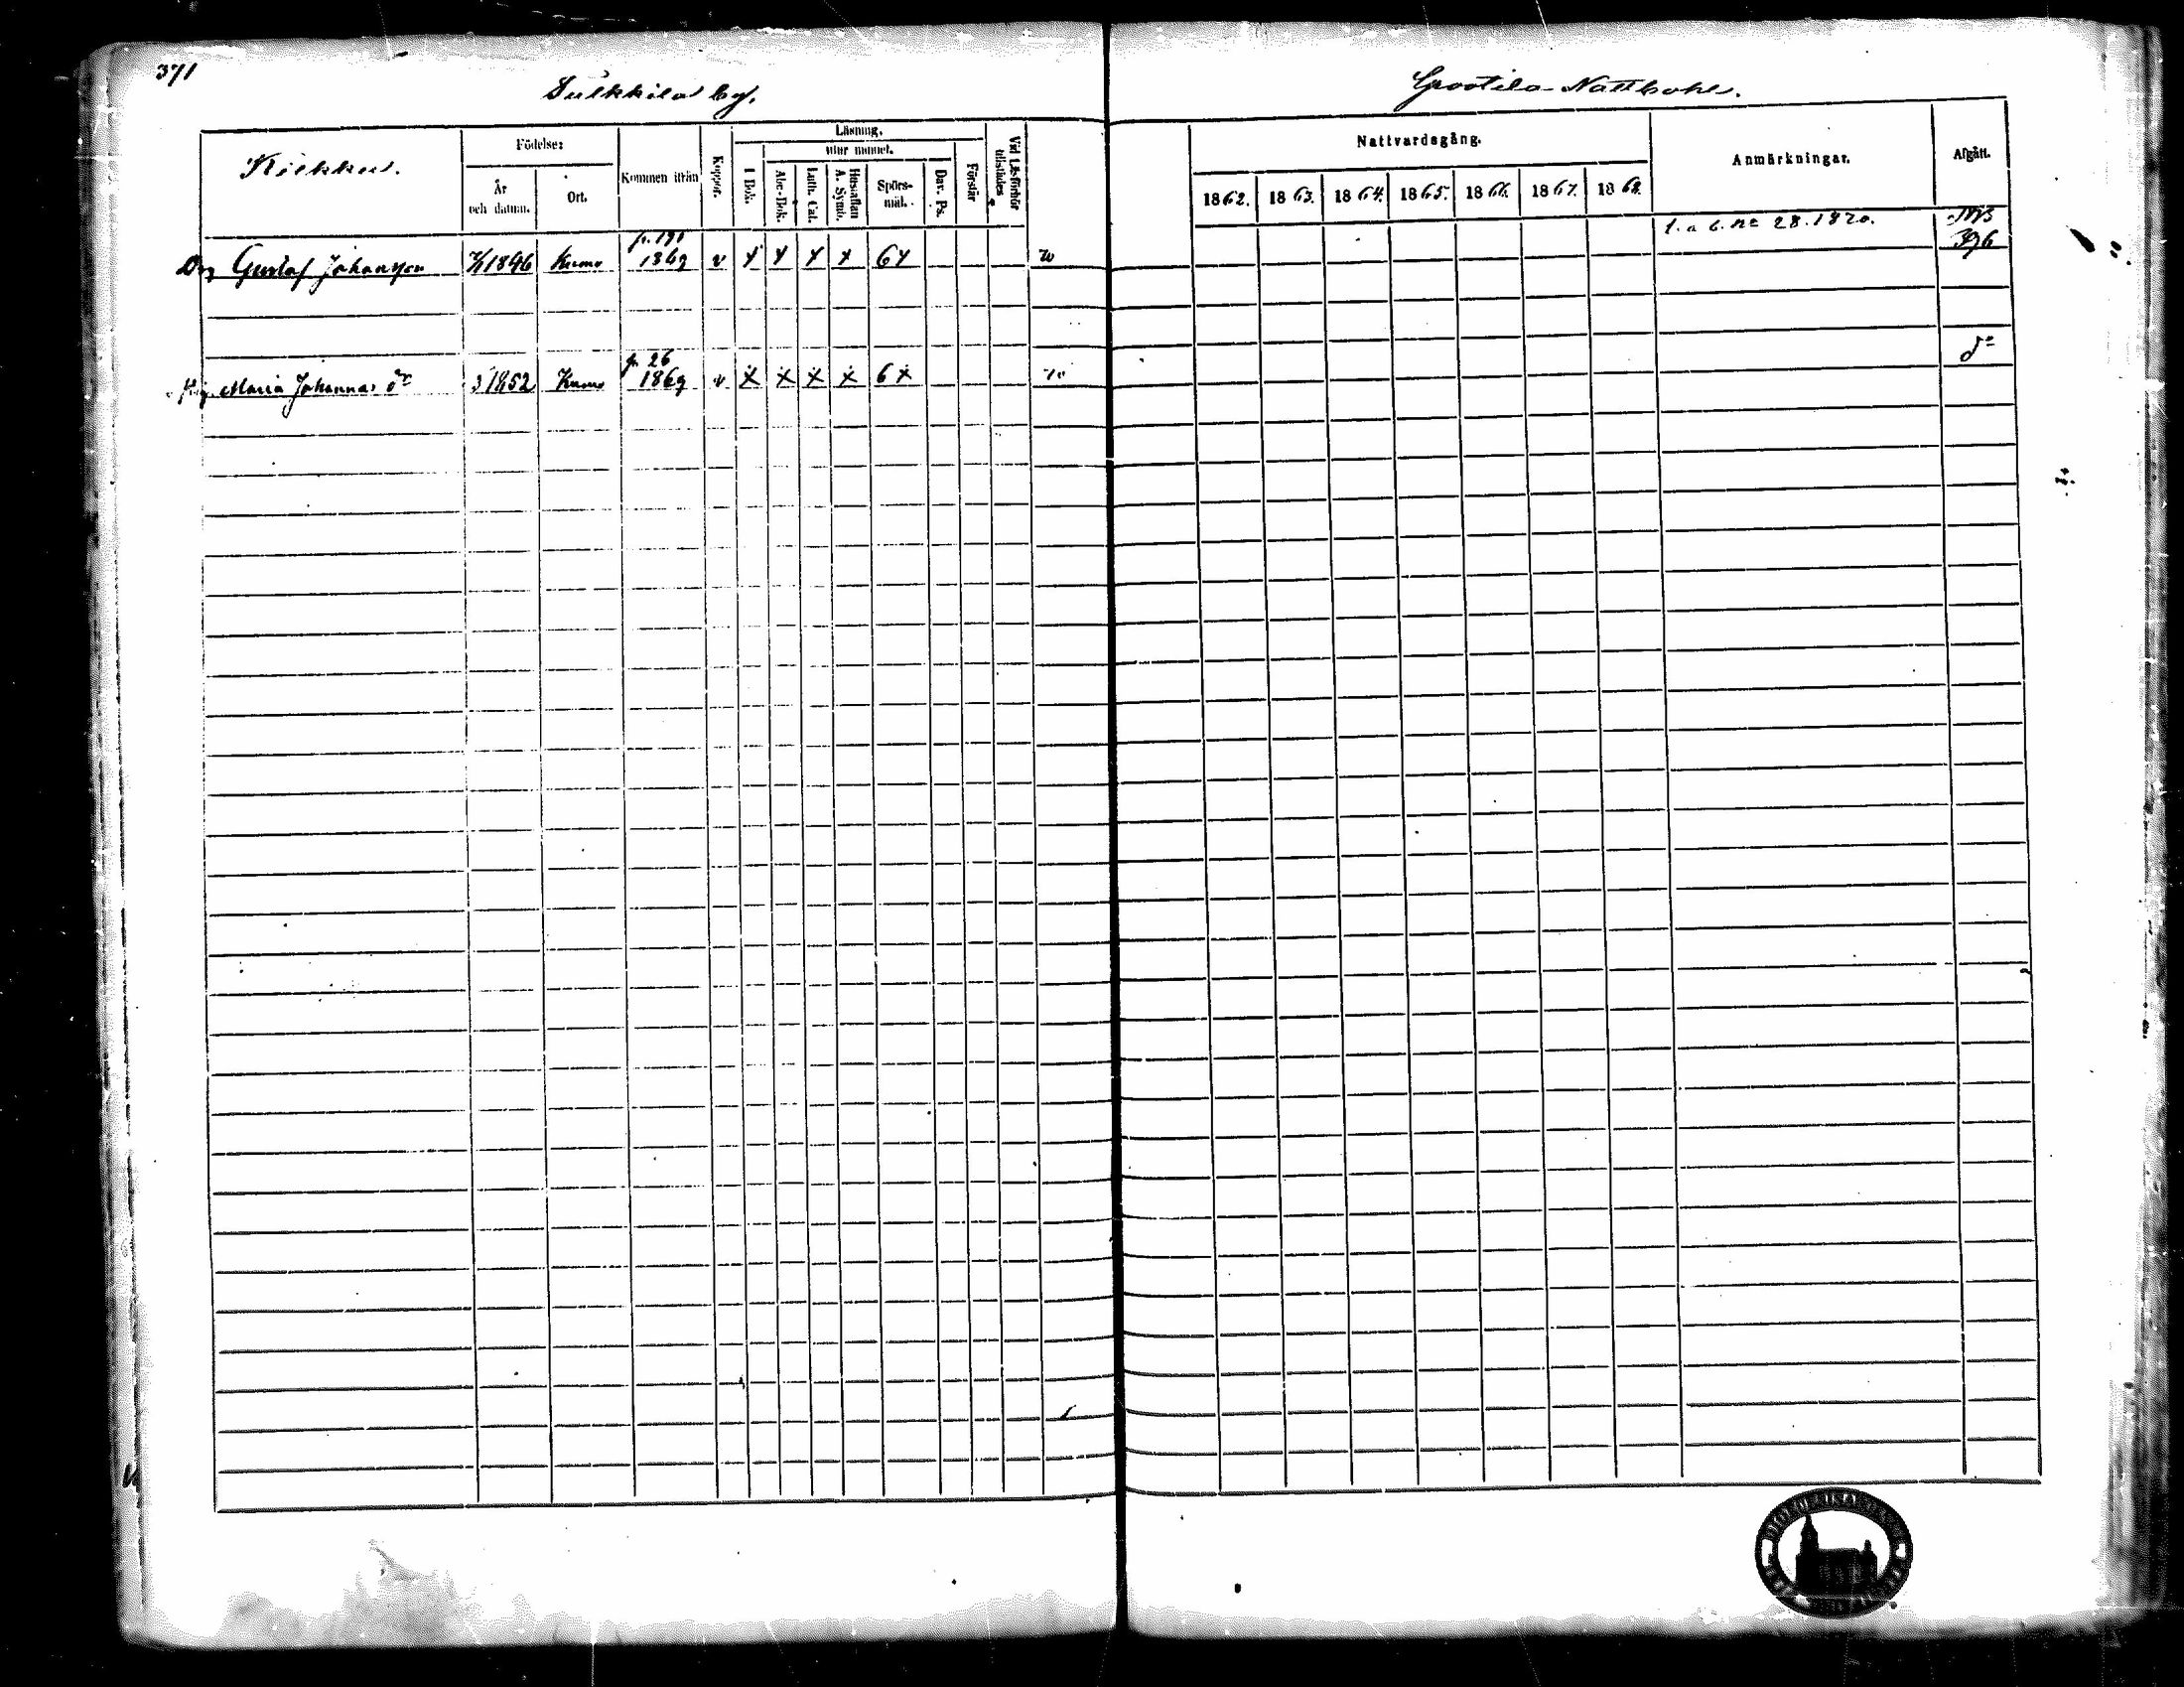 371
Sulkkila by.
Grootila-Nattbohl.
Kiekku.
Födelse:
År och datum.
Ort.
Kommen ifrån
Koppor.
Läsning.
I Bok.
utur minnet.
Abc-Bok.
Luth. Cat.
Hustaflan A. Symb.
Spörs-mål.
Dav. Ps.
Förstår
Vid Läsförhör tillstädes
Nattvardsgång.
1862. 1863. 1864. 1865. 1866. 1867. 1868.
Anmärkningar.
Afgått.
p. 191
Drg Gustaf Johansson 1846 Kumo 1869 v x x x x 6 x
28. 1820.
396
p. 26
Maria Johannas dr 3 1852 Kumo 1869 v x x x x 6 x
do